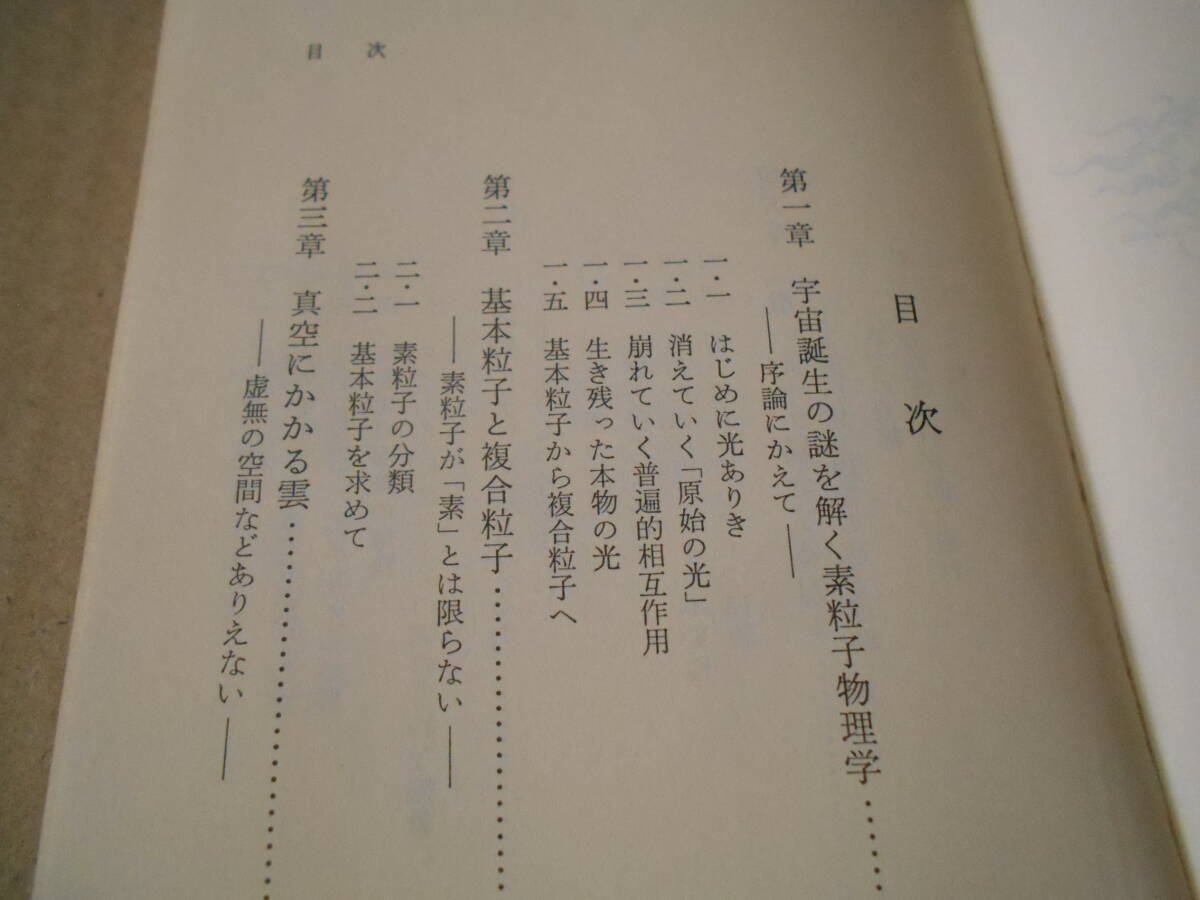 目次
目次
第一章 宇宙誕生の謎を解く素粒子物理学……
――序論にかえて――
一・一 はじめに光ありき
一・二 消えていく「原始の光」
一・三 崩れていく普遍的相互作用
一・四 生き残った本物の光
一・五 基本粒子から複合粒子へ
第二章 基本粒子と複合粒子………………
――素粒子が「素」とは限らない――
二・一 素粒子の分類
二・二 基本粒子を求めて
第三章 真空にかかる雲………………………
――虚無の空間などありえない――